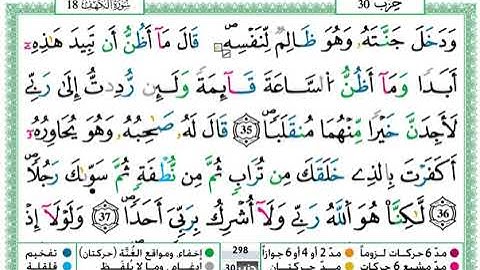 حزب 30
سورة الكهف 18
وَدَخَلَ جَنَّتَهُۥ وَهُوَ ظَالِمٌ لِّنَفْسِهِۦ قَالَ مَآ أَظُنُّ أَن تَبِيدَ هَٰذِهِۦ
أَبَدًا وَمَآ أَظُنُّ اُ۬لسَّاعَةَ قَآئِمَةً وَلَئِن رُّدِدتُّ إِلَىٰ رَبِّے
لَأَجِدَنَّ خَيْرًا مِّنْهُمَا مُنقَلَبًا 35 قَالَ لَهُۥ صَاحِبُهُۥ وَهُوَ يُحَاوِرُهُۥ
أَكَفَرْتَ بِالذِے خَلَقَكَ مِن تُرَابٍ ثُمَّ مِن نُّطْفَةٍ ثُمَّ سَوَّىٰكَ رَجُلًا
36 لَّٰكِنَّا هُوَ اَ۬للَّهُ رَبِّے وَلَآ أُشْرِكُ بِرَبِّيَ أَحَدًا 37 وَلَوْلَآ إِذ
مدّ 6 حركات لزوماً مدّ 2 أو 4 أو 6 جوازاً 298 إخفاء، ومواقع الغُنَّة (حركتان) تفخيم
مدّ مشبع 6 حركات مدّ حركتان إدغام، وما لا يُلفظ قلقلة